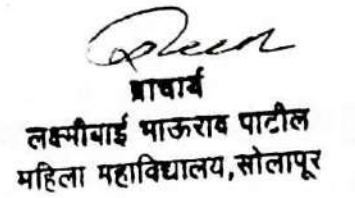 प्राचार्य
लक्ष्मीबाई भाऊराव पाटील
महिला महाविद्यालय,सोलापूर